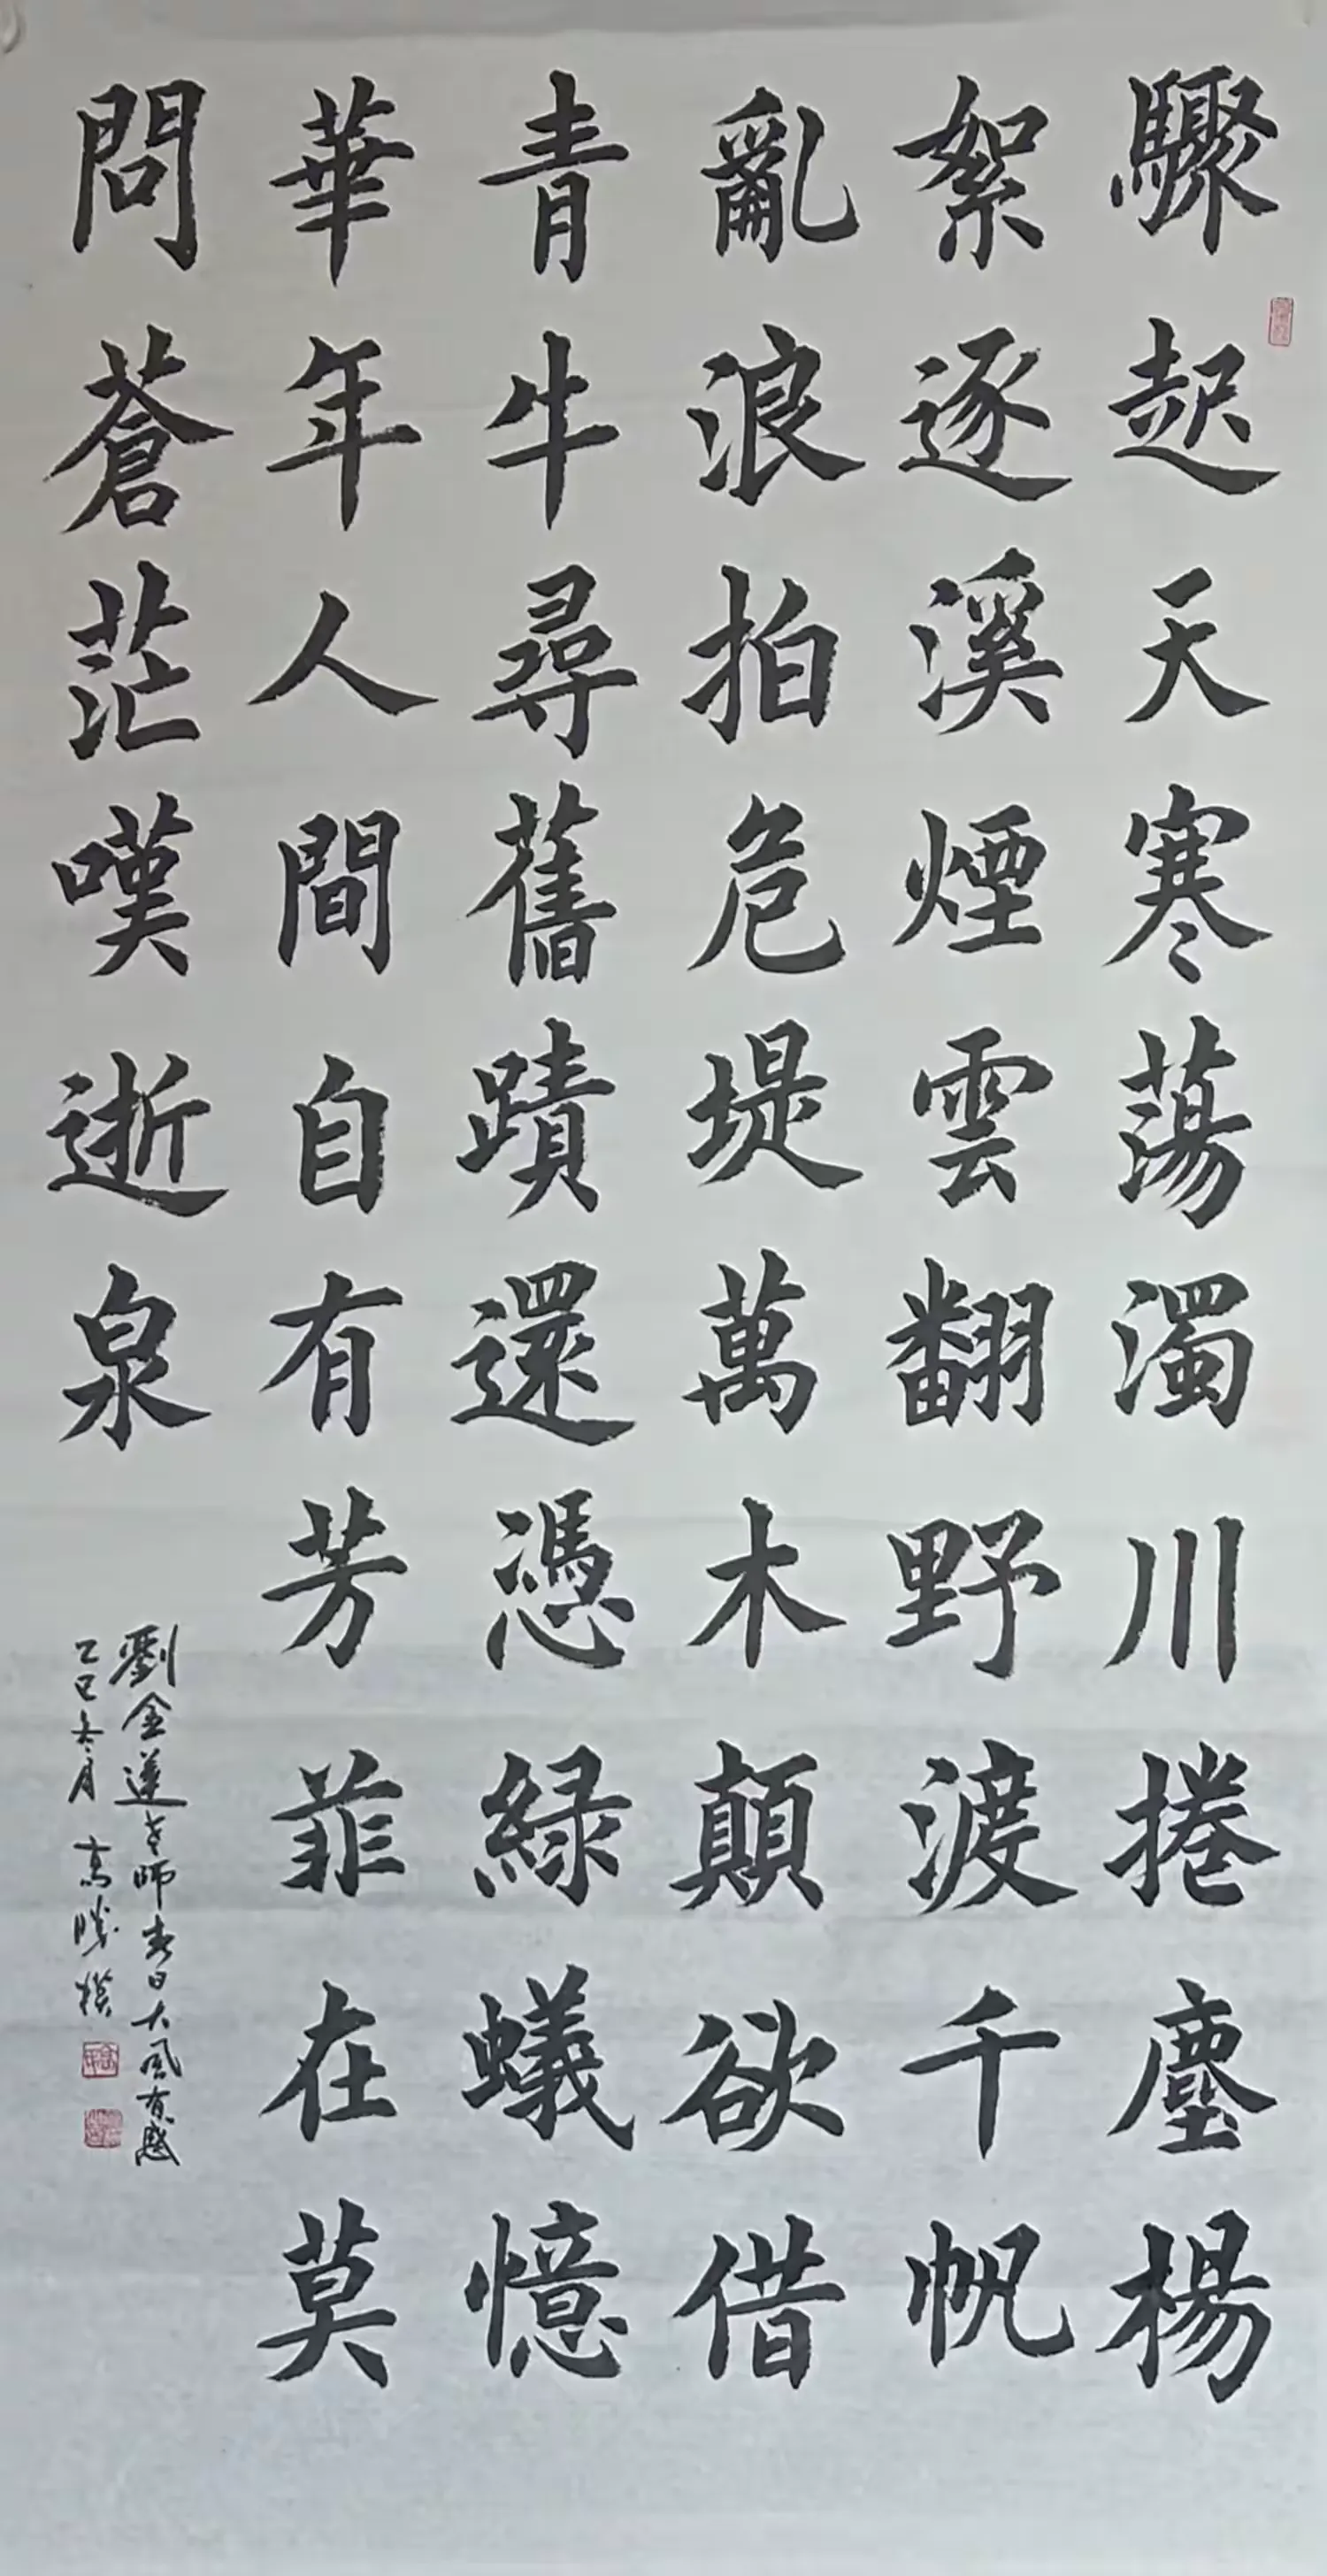 驟起天寒蕩濁川捲塵楊
絮逐溪煙雲翻野渡千帆
亂浪拍危堤萬木顛欲借
青牛尋舊蹟還憑綠蟻憶
華年人間自有芳菲在莫
問蒼茫嘆逝泉
劉金蓮老師春日大風有感
乙巳冬月 高勝模